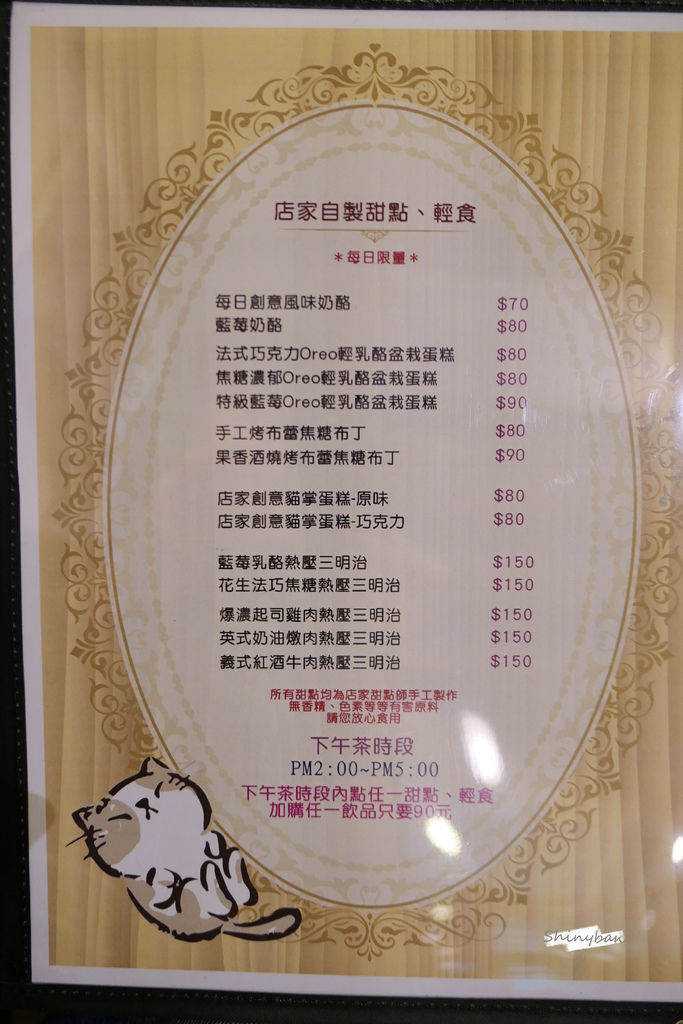 店家自製甜點、輕食
＊每日限量＊
每日創意風味奶酪 $70
藍莓奶酪 $80
法式巧克力Oreo輕乳酪盆栽蛋糕 $80
焦糖濃郁Oreo輕乳酪盆栽蛋糕 $80
特級藍莓Oreo輕乳酪盆栽蛋糕 $90
手工烤布蕾焦糖布丁 $80
果香酒燒烤布蕾焦糖布丁 $90
店家創意貓掌蛋糕-原味 $80
店家創意貓掌蛋糕-巧克力 $80
藍莓乳酪熱壓三明治 $150
花生法巧焦糖熱壓三明治 $150
爆濃起司雞肉熱壓三明治 $150
英式奶油燉肉熱壓三明治 $150
義式紅酒牛肉熱壓三明治 $150
所有甜點均為店家甜點師手工製作
無香精、色素等等有害原料
請您放心食用
下午茶時段
PM2:00~PM5:00
下午茶時段內點任一甜點、輕食
加購任一飲品只要90元
Shinyban